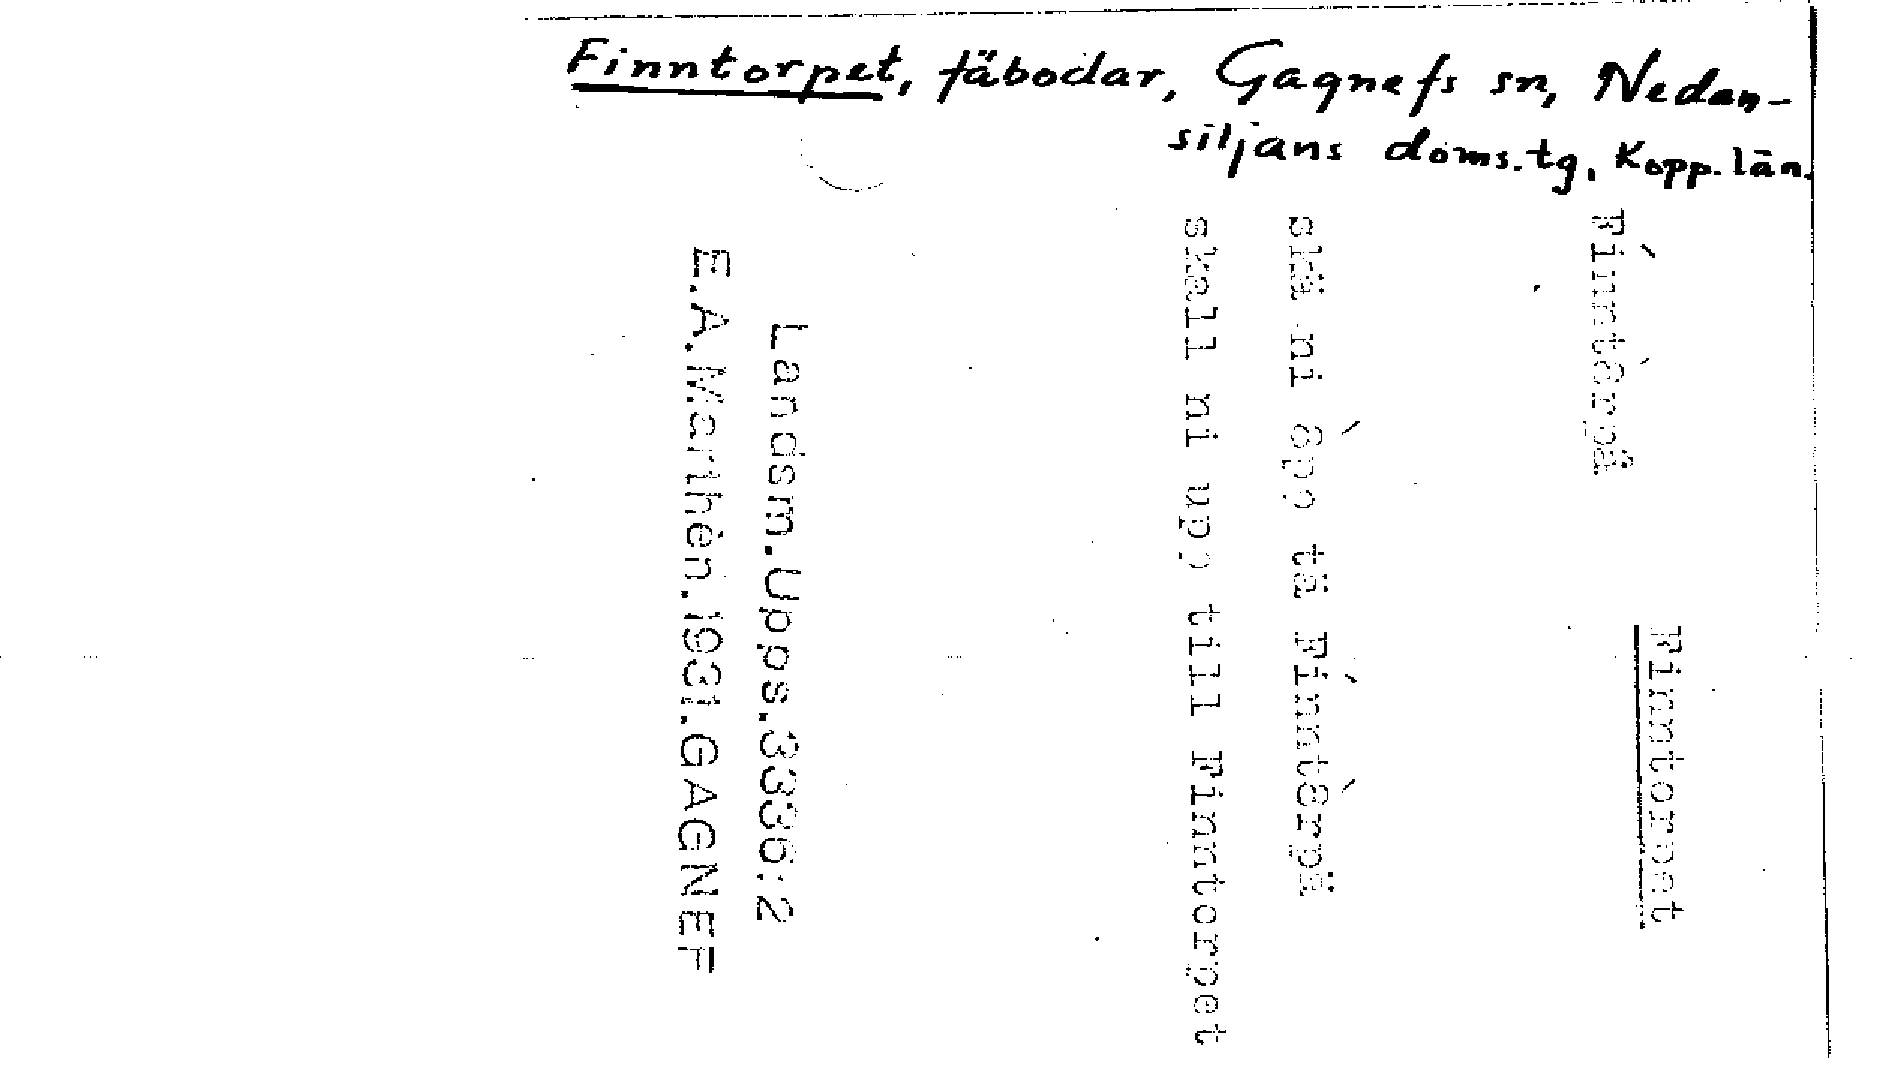 Finntorpet, fäbodar, Gagnefs sn, Nedan-
siljans doms.tg, Kopp. län.
Finntorpet
Fínntòrpå
skä ni òpp tä Fínntòrpä
skall ni upp till Finntorpet
Landsm.Upps.3336:2
E.A.Marthén.1931.GAGNEF